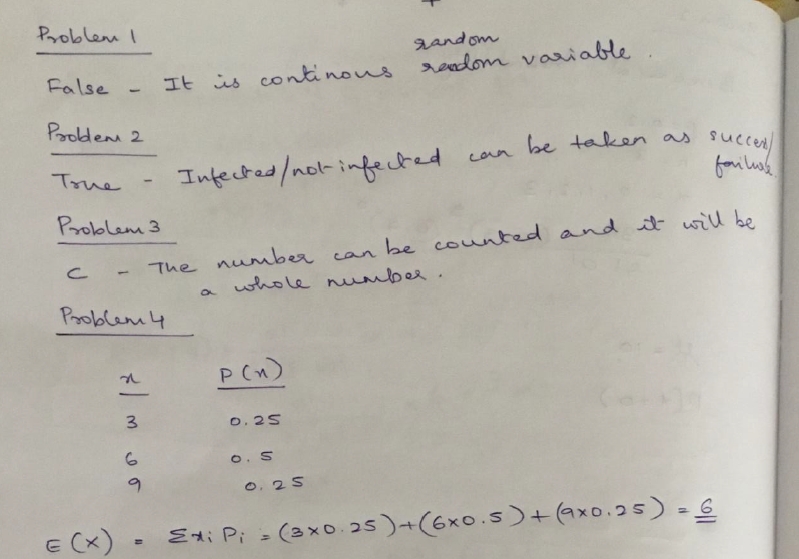 Problem 1
random
False - It is continous random variable.
Problem 2
True - Infected/not-infected can be taken as success/
failure.
Problem 3
C - The number can be counted and it will be
a whole number.
Problem 4
x P(x)
3 0.25
6 0.5
9 0.25
E(X) = Σxi Pi = (3×0.25)+(6×0.5)+(9×0.25) = 6